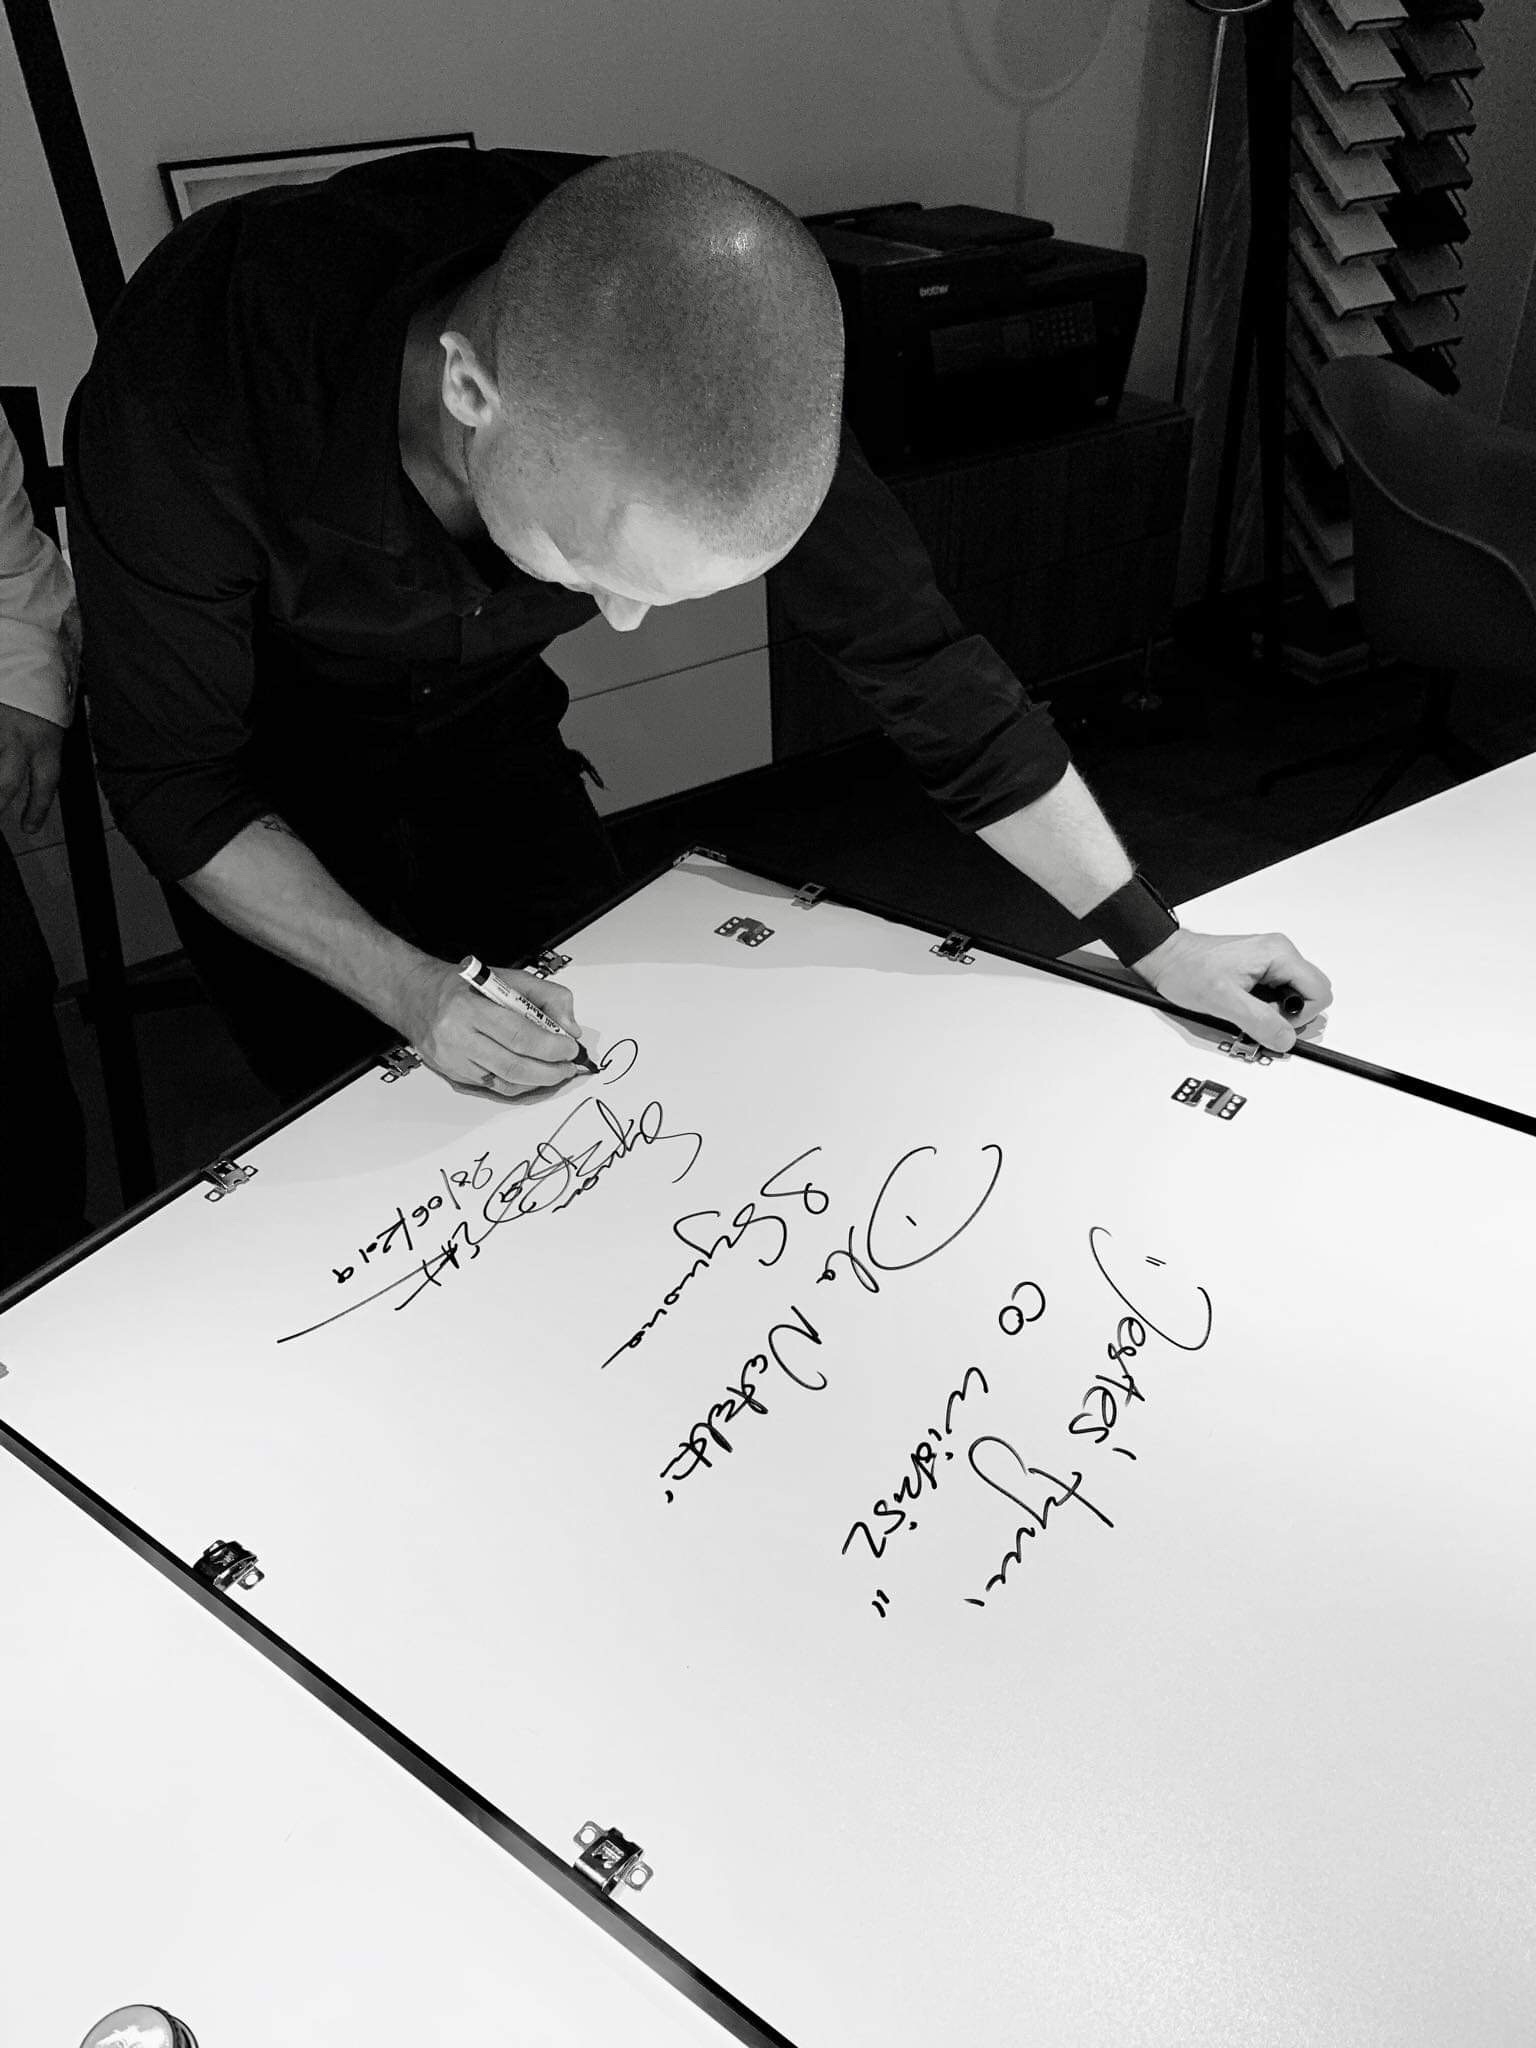 "Jesteś tym,
co widzisz"
Dla Natalii
& Szymona
Szymon
28/06/2019
brother